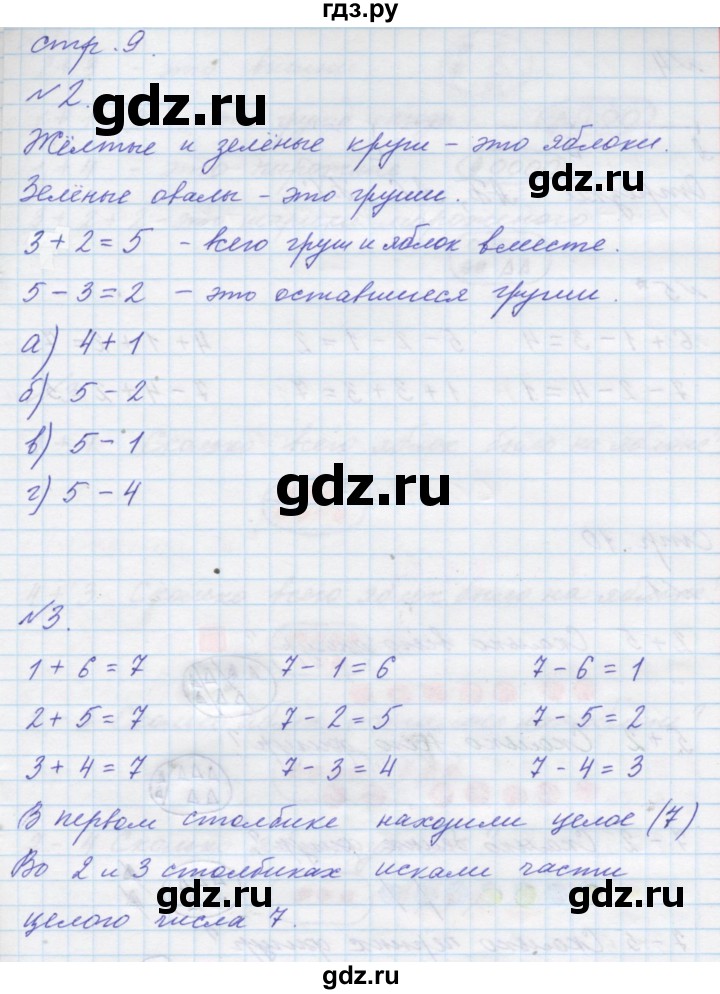 гдз.ру
стр. 9.
№2.
gdz.ru
gdz.ru
Жёлтые и зелёные круги – это яблоки.
Зелёные овалы – это груши.
3 + 2 = 5 – всего груш и яблок вместе.
gdz.ru
gdz.ru
5 – 3 = 2 – это оставшиеся груши.
а) 4 + 1
б) 5 – 2
gdz.ru
gdz.ru
в) 5 – 1
г) 5 – 4
gdz.ru
gdz.ru
№3.
gdz.ru
gdz.ru
1 + 6 = 7 7 – 1 = 6 7 – 6 = 1
2 + 5 = 7 7 – 2 = 5 7 – 5 = 2
3 + 4 = 7 7 – 3 = 4 7 – 4 = 3
gdz.ru
gdz.ru
В первом столбике находили целое (7)
Во 2 и 3 столбиках искали части
целого числа 7.
gdz.ru
gdz.ru
gdz.ru
gdz.ru